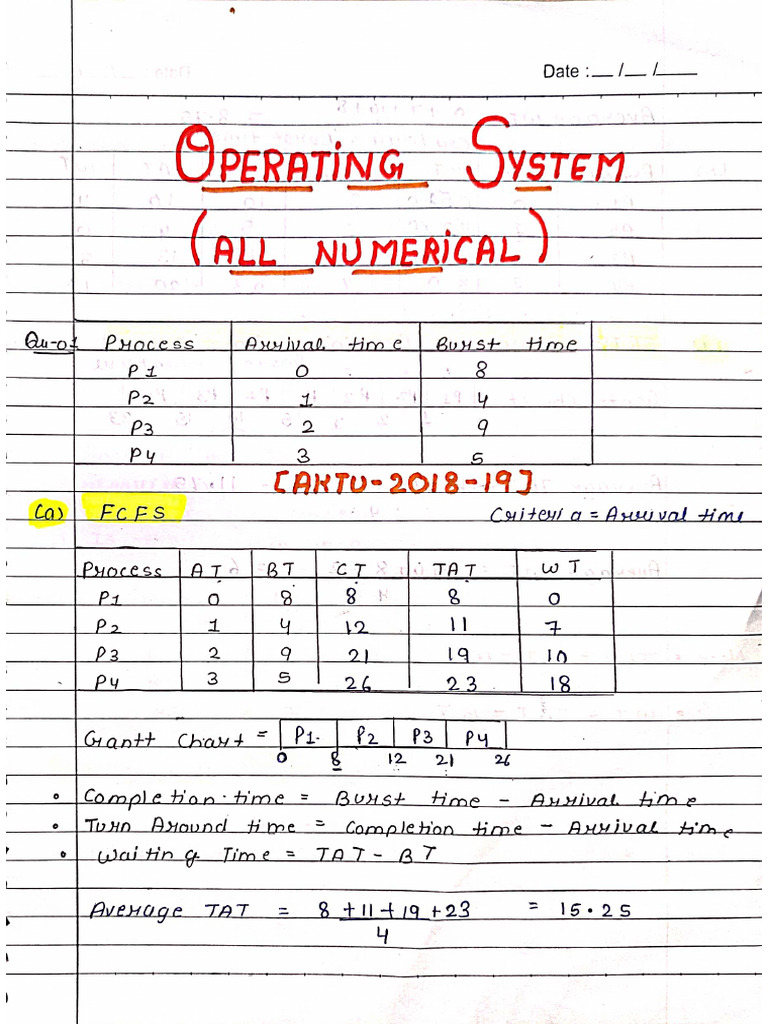 Date : __ / __ / ____
OPERATING SYSTEM
(ALL NUMERICAL)
Qu-01 Process Arrival time Burst time
P1 0 8
P2 1 4
P3 2 9
P4 3 5
[AKTU-2018-19]
(a) FCFS Criteria = Arrival time
Process AT BT CT TAT WT
P1 0 8 8 8 0
P2 1 4 12 11 7
P3 2 9 21 19 10
P4 3 5 26 23 18
Gantt Chart = P1 P2 P3 P4
0 8 12 21 26
• Completion time = Burst time - Arrival time
• Turn Around time = Completion time - Arrival time
• Waiting Time = TAT - BT
Average TAT = 8 + 11 + 19 + 23 = 15.25
4